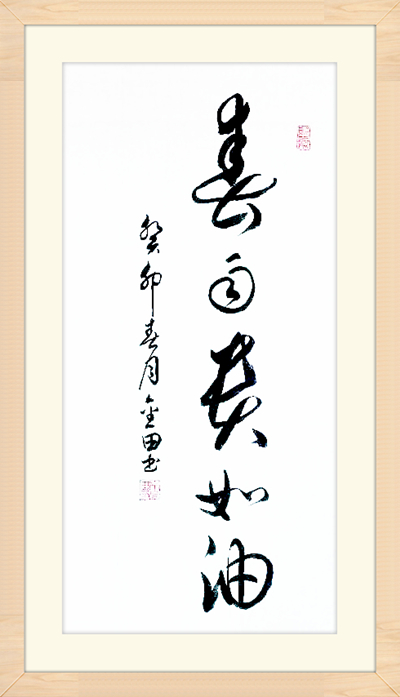 春雨贵如油
癸卯春月金田书